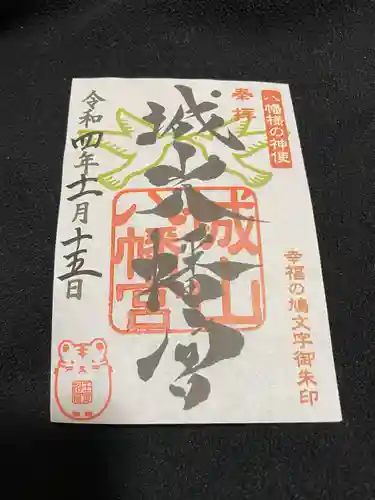 八幡様の神使
奉拝
城山八幡宮
城山
八幡宮
令和四年十一月十五日
幸福の鳩文字御朱印